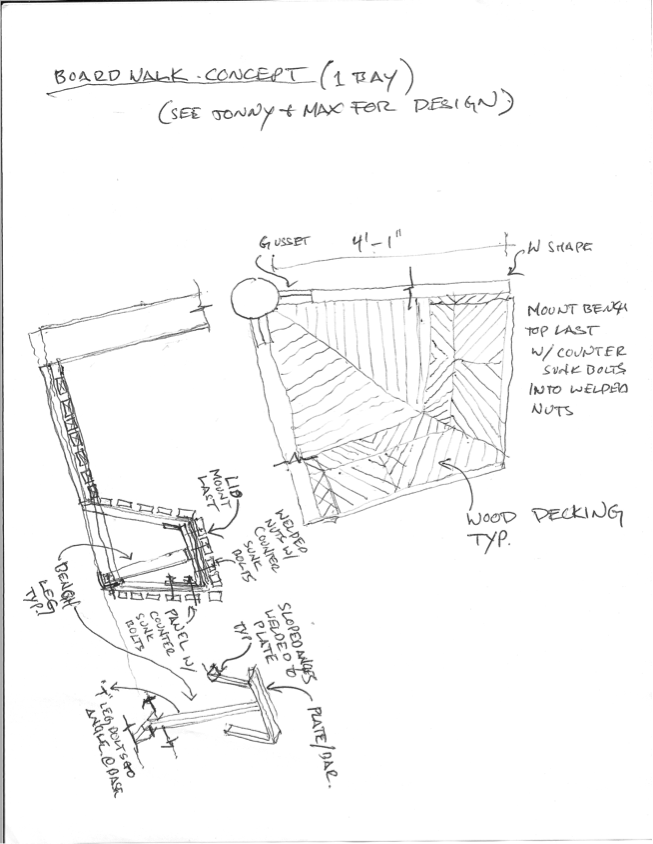 BOARDWALK - CONCEPT (1 BAY)
(SEE JONNY + MAX FOR DESIGN)
GUSSET
4'-1"
W SHAPE
MOUNT BENCH
TOP LAST
W/ COUNTER
SUNK BOLTS
INTO WELDED
NUTS
WOOD DECKING
TYP.
LID
MOUNT
LAST
WELDED
NUTS W/
COUNTER
SUNK
BOLTS
BENCH
LEG
TYP.
PANEL W/
COUNTER
SUNK
BOLTS
SLOPED ANGLES
WELDED TO
PLATE
TYP
PLATE/BAR.
"T" LEG BOLTS TO
ANGLE @ BASE